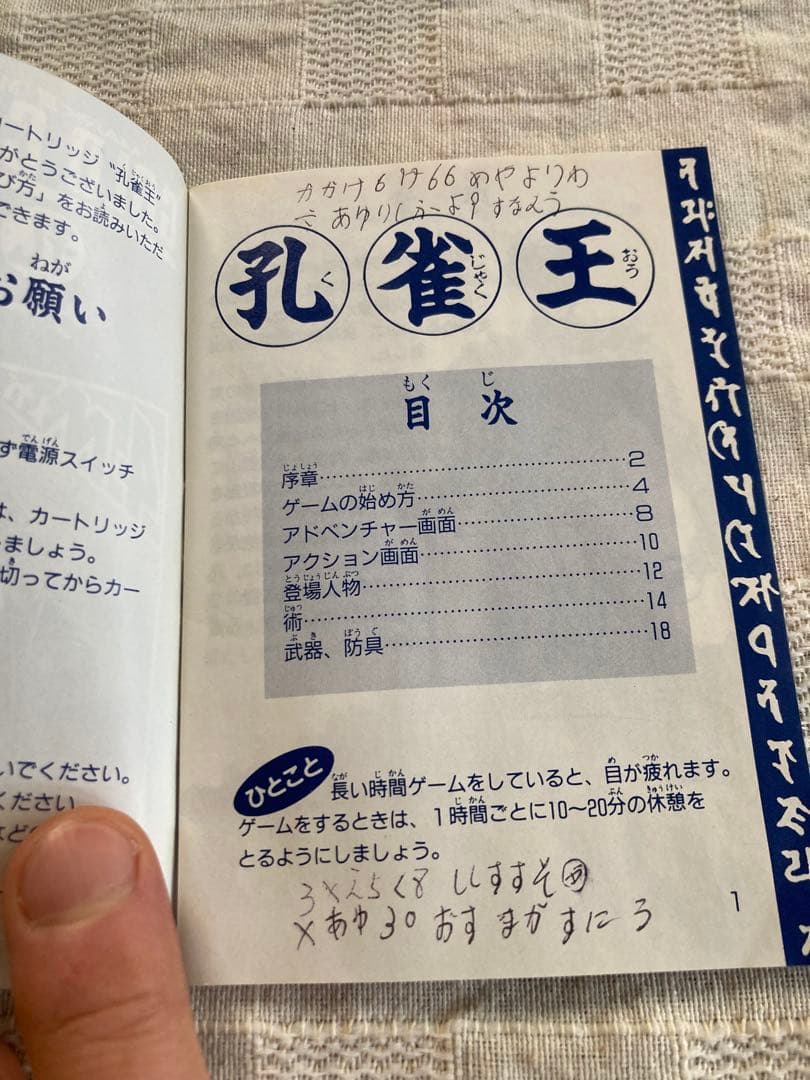 ートリッジ"孔雀王"
がとうございました。
び方」をお読みいただ
できます。
お願い
ず電源スイッチ
は、カートリッジ
しましょう。
切ってからカー
いでください。
ください
孔雀王
目次
序章……2
ゲームの始め方……4
アドベンチャー画面……8
アクション画面……10
登場人物……12
術……14
武器、防具……18
ひとこと
長い時間ゲームをしていると、目が疲れます。
ゲームをするときは、1時間ごとに10〜20分の休憩を
とるようにしましょう。
3×えらく8 ししすすそあ
×あゆ30 おす まがすにろ
1